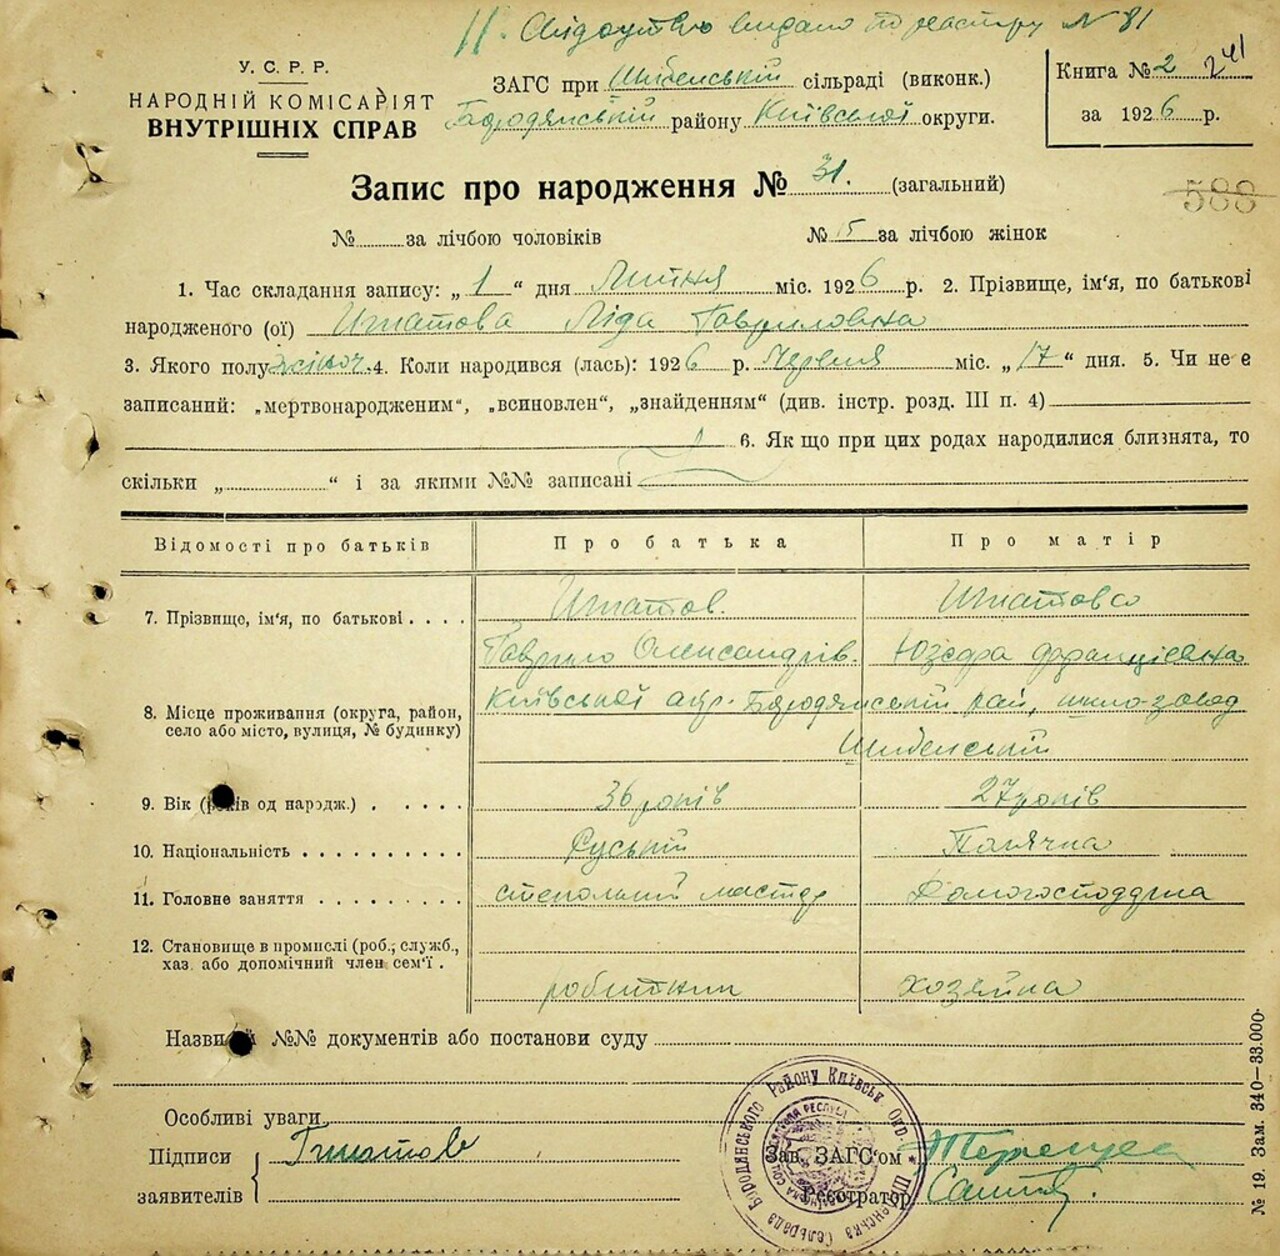 11. Свідоцтво видано по реєстру № 81
У. С. Р. Р.
НАРОДНІЙ КОМІСАРІЯТ
ВНУТРІШНІХ СПРАВ
ЗАГС при Шибенській сільраді (виконк.)
Бородянській району Київської округи.
Книга № 2 241
за 1926 р.
Запис про народження № 31. (загальний)
588
№ за лічбою чоловіків № 15 за лічбою жінок
1. Час складання запису: „1“ дня Липня міс. 1926 р. 2. Прізвище, ім‘я, по батькові
народженого (ої) Игнатова Ліда Гавриловна
3. Якого полу жіноч. 4. Коли народився (лась): 1926 р. Червня міс. „17“ дня. 5. Чи не є
записаний: „мертвонародженим“, „всиновлен“, „знайденням“ (див. інстр. розд. III п. 4)
6. Як що при цих родах народилися близнята, то
скільки „ “ і за якими №№ записані
Відомості про батьків Про батька Про матір
7. Прізвище, ім‘я, по батькові . . . . Игнатов. Игнатова
Гаврило Олександрів. Юзефа Францієвна
8. Місце проживання (округа, район, село або місто, вулиця, № будинку) Київської окр. Бородянській рай, шкло-завод
Шибенській
9. Вік (років од народж.) . . . . . 36 років 27 років
10. Національність . . . . . . . . . . Руський Полячка
11. Головне заняття . . . . . . . . . стекольний мастер Домогосподарка
12. Становище в промислі (роб., служб.,
хаз. або допомічний член сем‘ї .
робітник хозяйка
Назви й №№ документів або постанови суду
Особливі уваги
Підписи Игнатов
заявителів
Зав. ЗАГС‘ом
Реєстратор
Бородянського Району Київськ Окр. * Шибенська Сельрада
№ 19. Зам. 340—33.000·